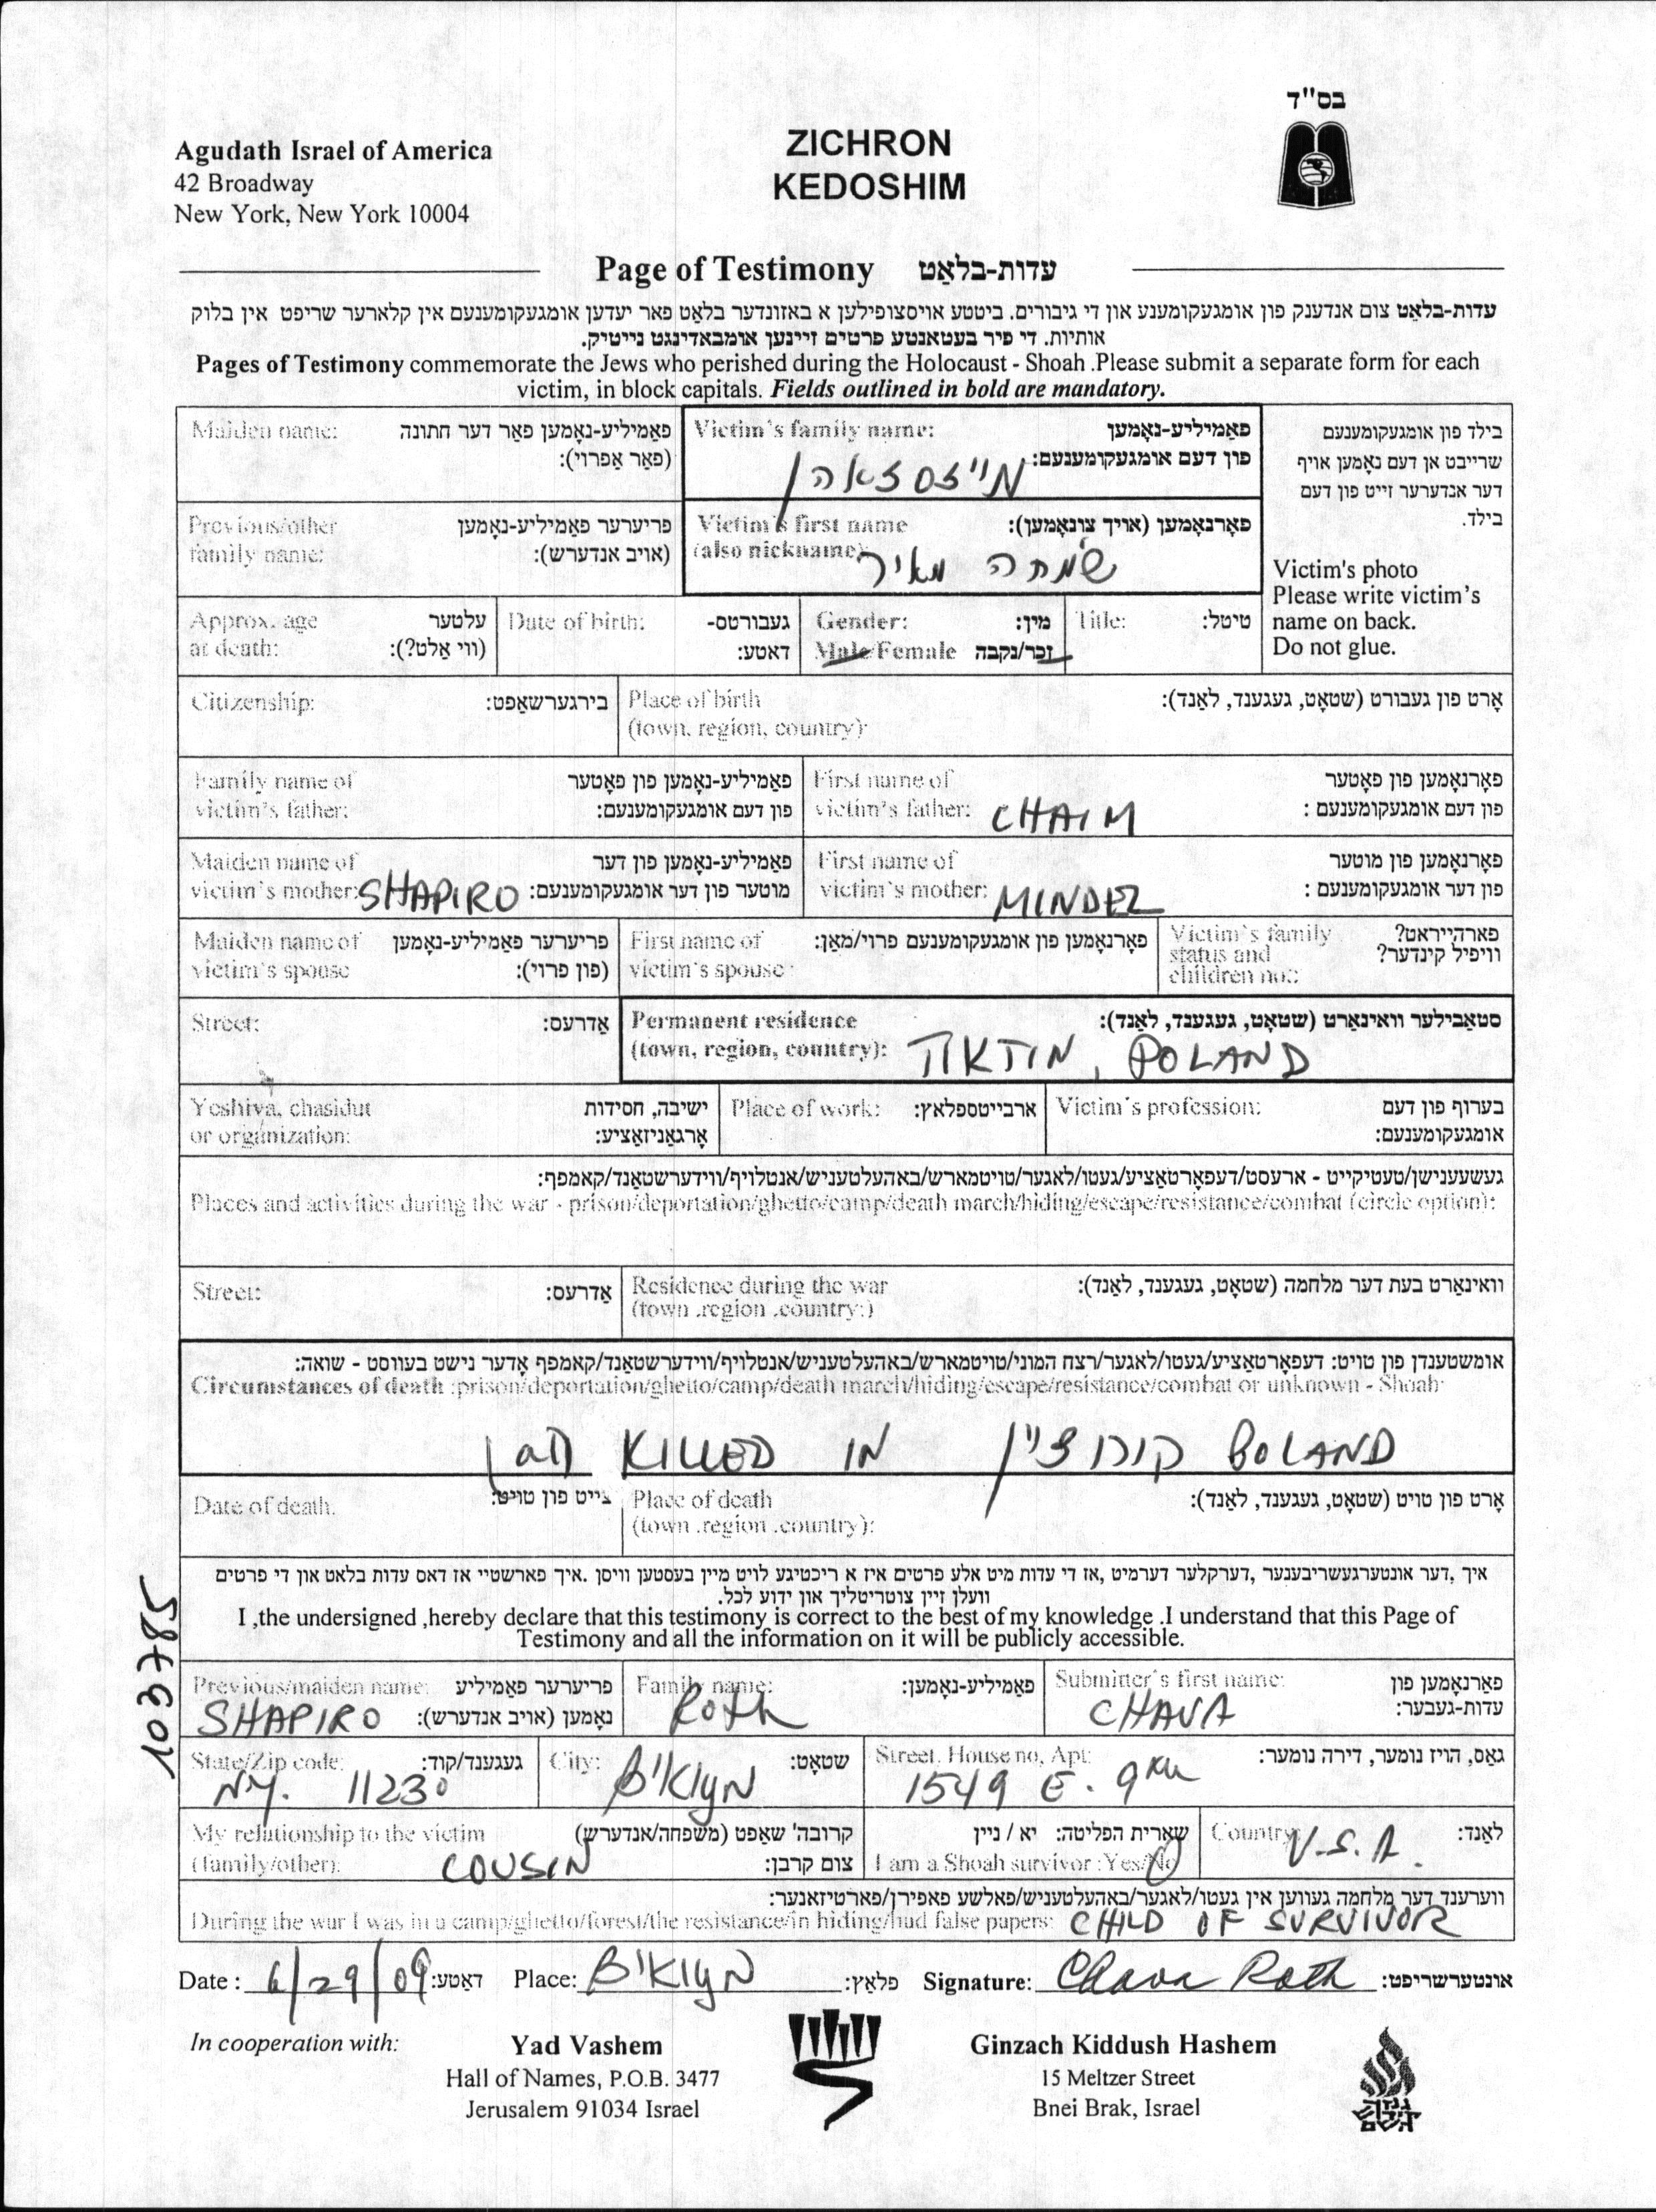 בס"ד
Agudath Israel of America
42 Broadway
New York, New York 10004
ZICHRON
KEDOSHIM
Page of Testimony עדות-בלאַט
עדות-בלאַט צום אנדענק פון אומגעקומענע און די גיבורים. ביטטע אויסצופילען א באזונדער בלאט פאר יעדען אומגעקומענעם אין קלארער שריפט אין בלוק
אותיות. די פיר בעטאנטע פרטים זיינען אומבאדינגט נייטיק.
Pages of Testimony commemorate the Jews who perished during the Holocaust - Shoah .Please submit a separate form for each
victim, in block capitals. Fields outlined in bold are mandatory.
Maiden name: פאַמיליע-נאָמען פאַר דער חתונה
(פאַר אַפרוי):
Victim's family name: פאַמיליע-נאָמען
פון דעם אומגעקומענעם:
מייזסזאהן
בילד פון אומגעקומענעם
שרייבט אן דעם נאָמען אויף
דער אנדערער זייט פון דעם
בילד.
Victim's photo
Please write victim's
name on back.
Do not glue.
Previous/other פריערער פאַמיליע-נאָמען
family name: (אויב אנדערש):
Victim's first name פאָרנאָמען (אויך צונאָמען):
(also nickname): שמחה מאיר
Approx. age עלטער
at death: (ווי אַלט?):
Date of birth: געבורטס-
דאטע:
Gender: מין:
Male/Female זכר/נקבה
Title: טיטל:
Citizenship: בירגערשאַפט:
Place of birth אָרט פון געבורט (שטאָט, געגענד, לאַנד):
(town, region, country):
Family name of פאַמיליע-נאָמען פון פאָטער
victim's father: פון דעם אומגעקומענעם:
First name of פאָרנאָמען פון פאָטער
victim's father: CHAIM פון דעם אומגעקומענעם :
Maiden name of פאַמיליע-נאָמען פון דער
victim's mother: SHAPIRO מוטער פון דער אומגעקומענעם:
First name of פאָרנאָמען פון מוטער
victim's mother: MINDEL פון דער אומגעקומענעם :
Maiden name of פריערער פאַמיליע-נאָמען
victim's spouse (פון פרוי):
First name of פאָרנאָמען פון אומגעקומענעם פרוי/מאַן:
victim's spouse :
Victim's family פארהייראט?
status and וויפיל קינדער?
children no.:
Street: אַדרעס:
Permanent residence סטאַבילער וואינאָרט (שטאָט, געגענד, לאַנד):
(town, region, country): TIKTIN, POLAND
Yeshiva, chasidut ישיבה, חסידות
or organization: אָרגאַניזאַציע:
Place of work: ארבייטספלאץ:
Victim's profession: בערוף פון דעם
אומגעקומענעם:
געשעענישן/טעטיקייט - ארעסט/דעפאָרטאַציע/געטו/לאגער/טויטמארש/באהעלטעניש/אנטלויף/ווידערשטאַנד/קאמפף:
Places and activities during the war - prison/deportation/ghetto/camp/death march/hiding/escape/resistance/combat (circle option):
Street: אַדרעס:
Residence during the war וואינאָרט בעת דער מלחמה (שטאָט, געגענד, לאַנד):
(town .region .country:)
אומשטענדן פון טויט: דעפאָרטאַציע/געטו/לאגער/רצח המוני/טויטמארש/באהעלטעניש/אנטלויף/ווידערשטאַנד/קאמפף אָדער נישט בעוווסט - שואה:
Circumstances of death :prison/deportation/ghetto/camp/death march/hiding/escape/resistance/combat or unknown - Shoah:
KILLED IN POLAND
Date of death. צייט פון טויט:
Place of death אָרט פון טויט (שטאָט, געגענד, לאַנד):
(town .region .country):
איך ,דער אונטערגעשריבענער ,דערקלער דערמיט ,אז די עדות מיט אלע פרטים איז א ריכטיגע לויט מיין בעסטען וויסן .איך פארשטיי אז דאס עדות בלאט און די פרטים
וועלן זיין צוטריטליך און ידוע לכל.
I ,the undersigned ,hereby declare that this testimony is correct to the best of my knowledge .I understand that this Page of
Testimony and all the information on it will be publicly accessible.
103785
Previous/maiden name: פריערער פאַמיליע
SHAPIRO נאָמען (אויב אנדערש):
Family name: פאַמיליע-נאָמען:
Roth
Submitter's first name: פאַרנאָמען פון
CHAVA עדות-געבער:
State/Zip code: געגענד/קוד:
N.Y. 11230
City: שטאָט:
B'Klyn
Street. House no, Apt: גאַס, הויז נומער, דירה נומער:
1549 E. 9th
My relationship to the victim קרובה' שאַפט (משפחה/אנדערש)
(family/other): COUSIN צום קרבן:
שארית הפליטה: יא / ניין
I am a Shoah survivor :Yes/No
Country: לאַנד:
U.S.A.
ווערענד דער מלחמה געווען אין געטו/לאגער/באהעלטעניש/פאלשע פאפירן/פארטיזאנער:
During the war I was in a camp/ghetto/forest/the resistance/in hiding/had false papers: CHILD OF SURVIVOR
Date : 6/29/09 דאטע: Place: B'Klyn פלאַץ: Signature: Chava Roth אונטערשריפט:
In cooperation with:
Yad Vashem
Hall of Names, P.O.B. 3477
Jerusalem 91034 Israel
Ginzach Kiddush Hashem
15 Meltzer Street
Bnei Brak, Israel
גנזך
קידוש
השם